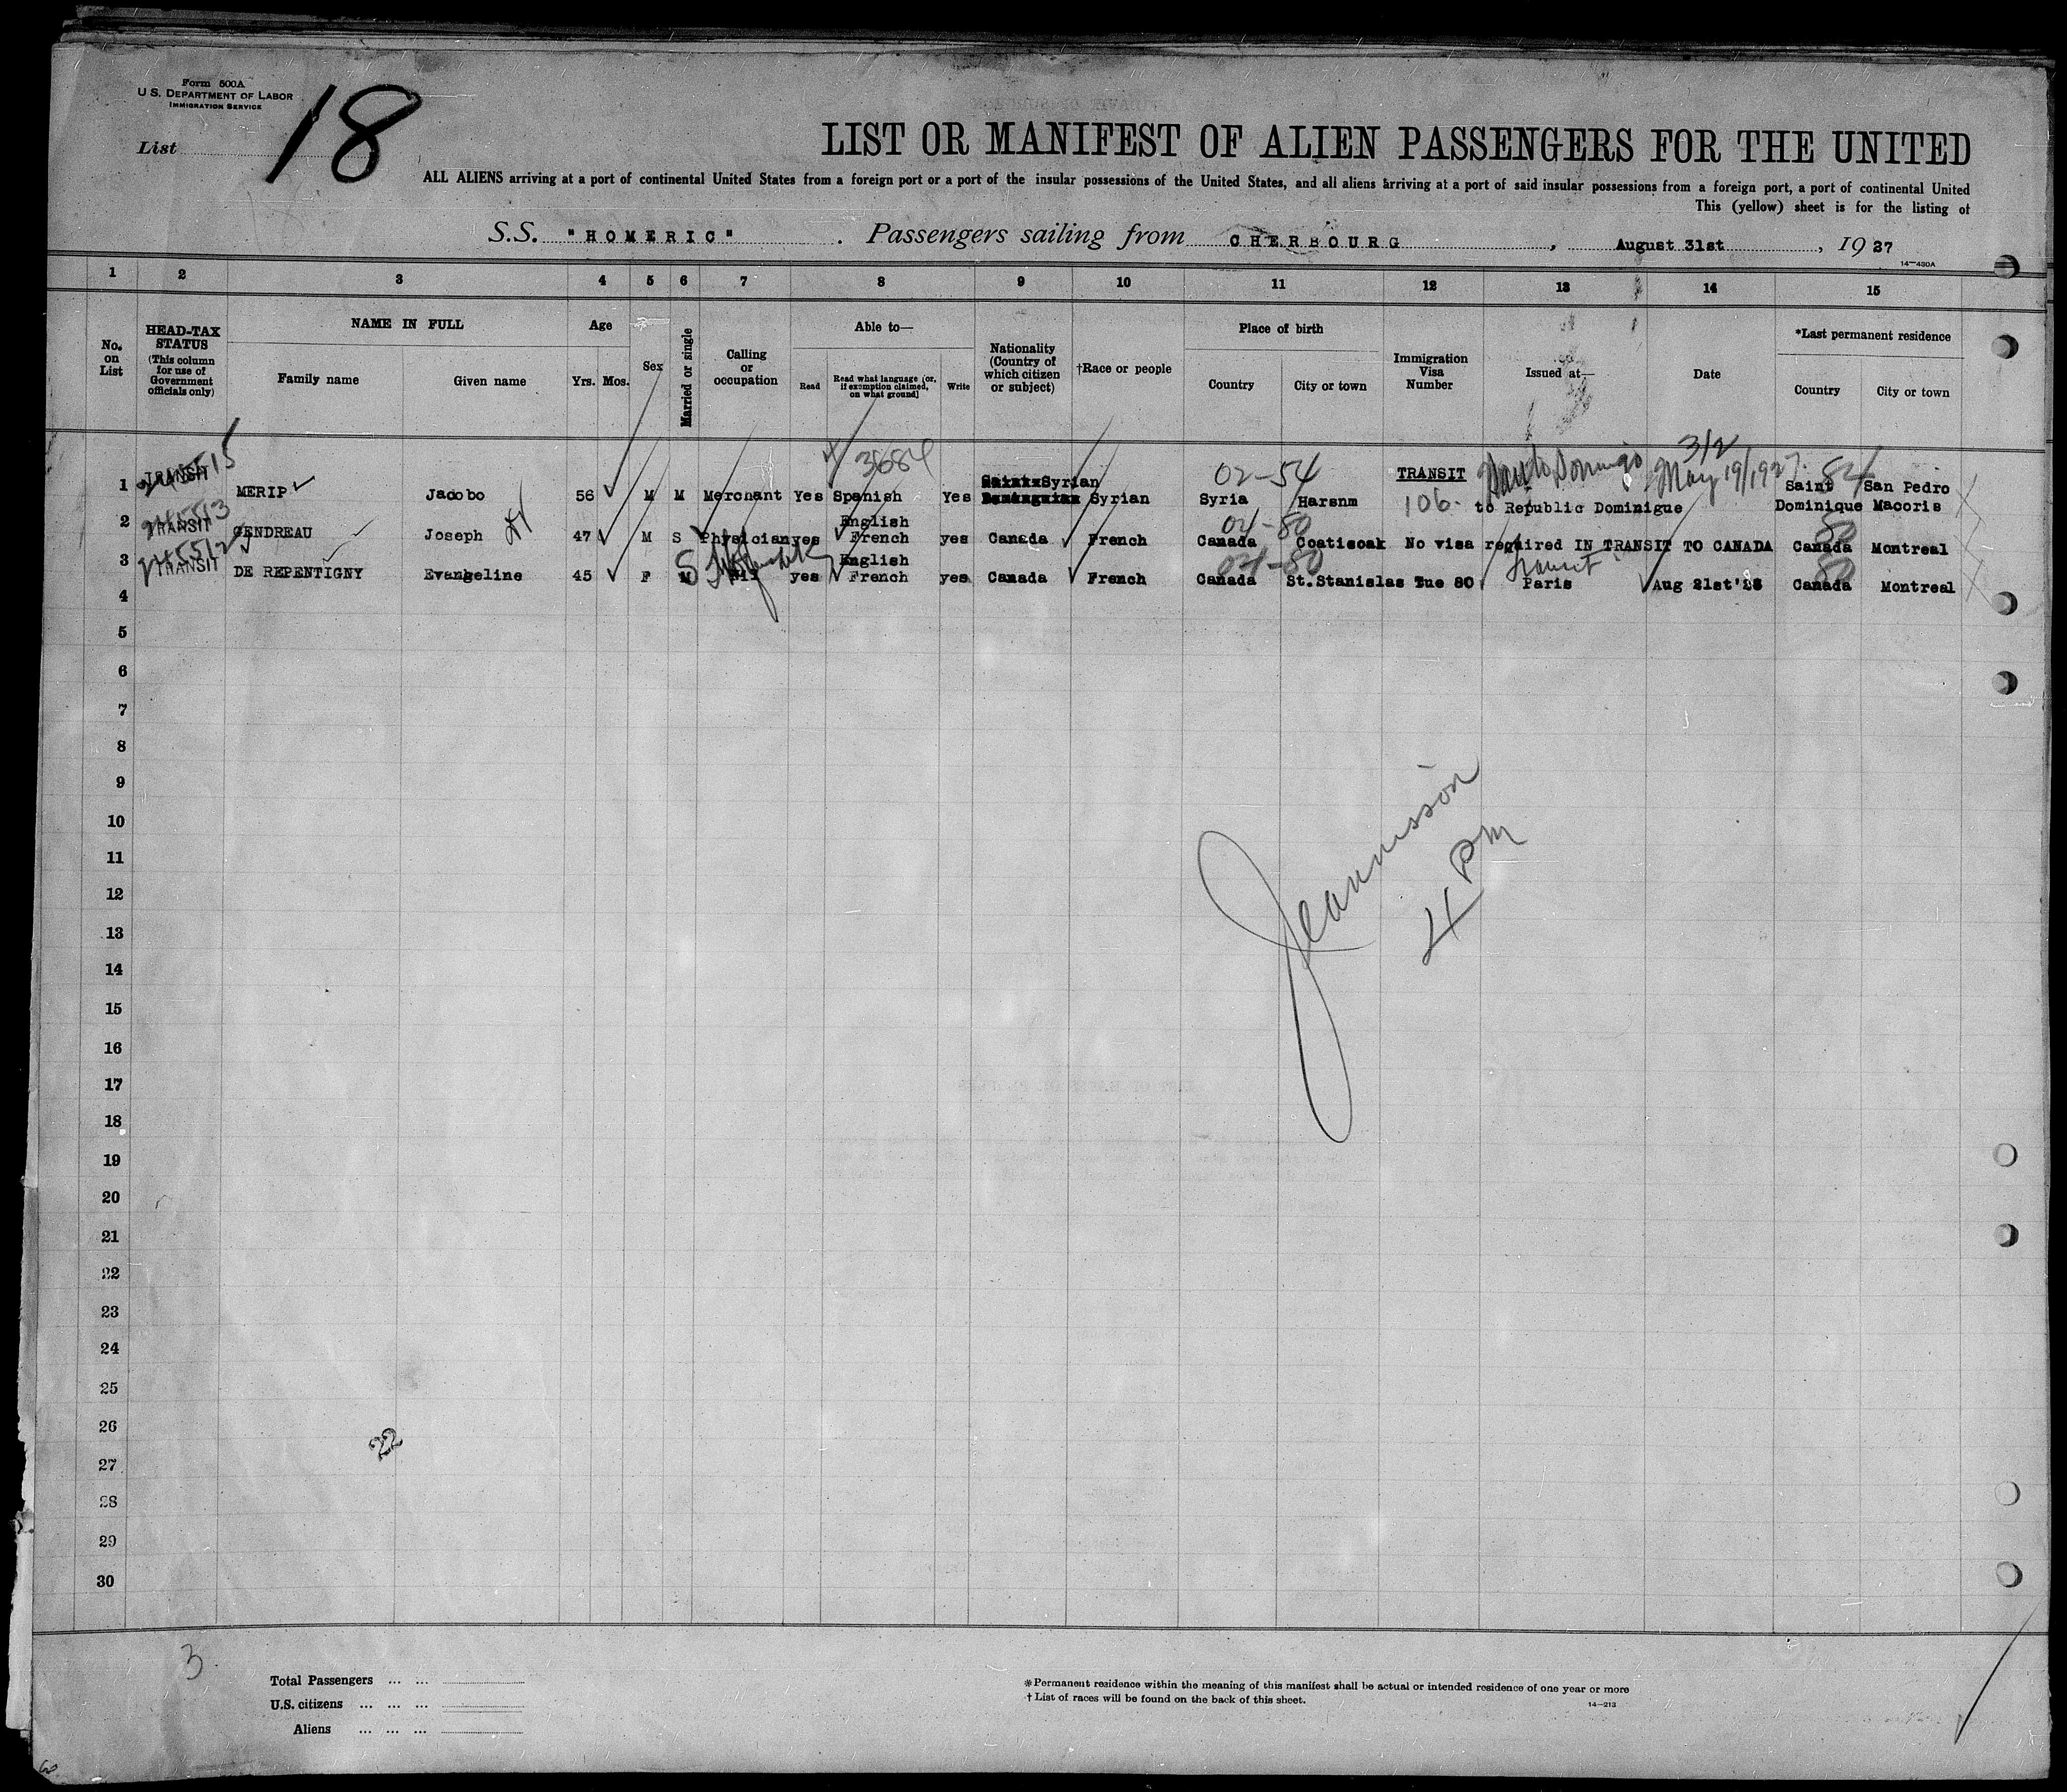 Form 500A
U. S. DEPARTMENT OF LABOR
IMMIGRATION SERVICE
List 18
LIST OR MANIFEST OF ALIEN PASSENGERS FOR THE UNITED
ALL ALIENS arriving at a port of continental United States from a foreign port or a port of the insular possessions of the United States, and all aliens arriving at a port of said insular possessions from a foreign port, a port of continental United
This (yellow) sheet is for the listing of
S.S. "HOMERIC" . Passengers sailing from CHERBOURG , August 31st , 1927
14—430A
1 2 3 4 5 6 7 8 9 10 11 12 13 14 15
No. on List
HEAD-TAX STATUS (This column for use of Government officials only)
NAME IN FULL
Family name Given name
Age
Yrs. Mos.
Sex
Married or single
Calling or occupation
Able to—
Read Read what language [or, if exemption claimed, on what ground] Write
Nationality (Country of which citizen or subject)
†Race or people
Place of birth
Country City or town
Immigration Visa Number
Issued at—
Date
*Last permanent residence
Country City or town
3684 02-54 Santo Domingo 312 May 19/1927 84
1 TRANSIT MERIP Jacobo 56 M M Merchant Yes Spanish Yes Syrian Syrian Syria Harsnm TRANSIT 106 to Republic Dominigue Saint Dominique San Pedro Macoris
04-80 80
2 TRANSIT GENDREAU Joseph 47 M S Physician yes English French yes Canada French Canada Coaticoak No visa required IN TRANSIT TO CANADA Canada Montreal
04-80 transit 80
3 TRANSIT DE REPENTIGNY Evangeline 45 F S Nil yes English French yes Canada French Canada St.Stanislas Tue 80 Paris Aug 21st Canada Montreal
4
5
6
7
8
9
10
11
12
13
14
15
16
17
18
19
20
21
22
23
24
25
26
27
28
29
30
4 PM
22
3
Total Passengers ... ...
U.S. citizens ... ... ...
Aliens ... ... ...
*Permanent residence within the meaning of this manifest shall be actual or intended residence of one year or more
† List of races will be found on the back of this sheet.
14—213